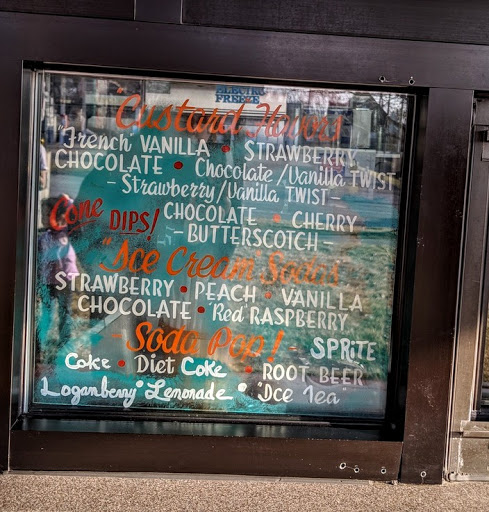 ELECTRO
FREEZE
"Custard Flavors
"French VANILLA • STRAWBERRY
CHOCOLATE • Chocolate/Vanilla TWIST
- Strawberry/Vanilla TWIST -
Cone DIPS! CHOCOLATE • CHERRY
- BUTTERSCOTCH -
"Ice Cream" Sodas
STRAWBERRY • PEACH • VANILLA
CHOCOLATE • Red RASPBERRY
- Soda Pop! SPRiTE
Coke • Diet Coke • ROOT BEER
Loganberry" Lemonade • "Ice Tea"